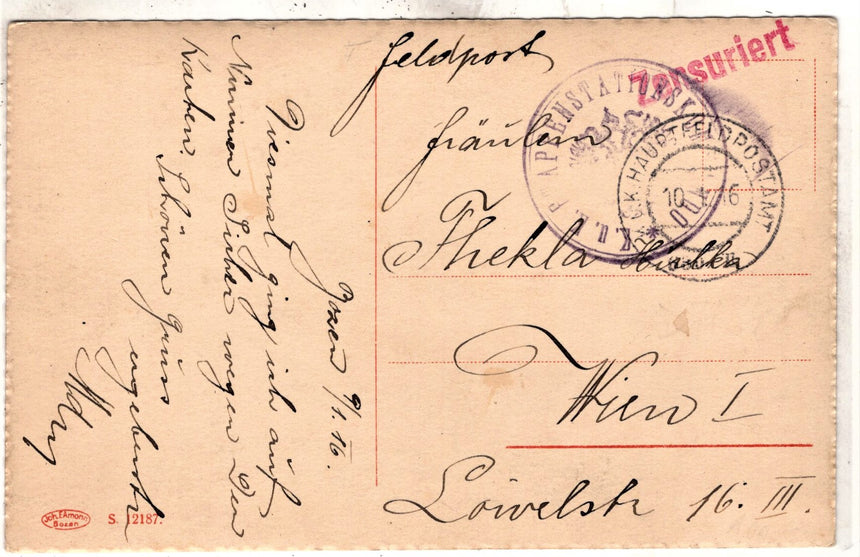 Bozen 9/1.16.
Diesmal ging ich auf
Nummer Sicher wegen Den
Karten. Schönen Gruss
ergebenster
Feldpost
Fräulein
Thekla
Wien I
Löwelstr 16. III.
Zensuriert
K.u.K. ETAPPENSTATIONSK
K.K. HAUPTFELDPOSTAMT
10. 16
Joh. F. Amonn
Bozen
S. 12187.